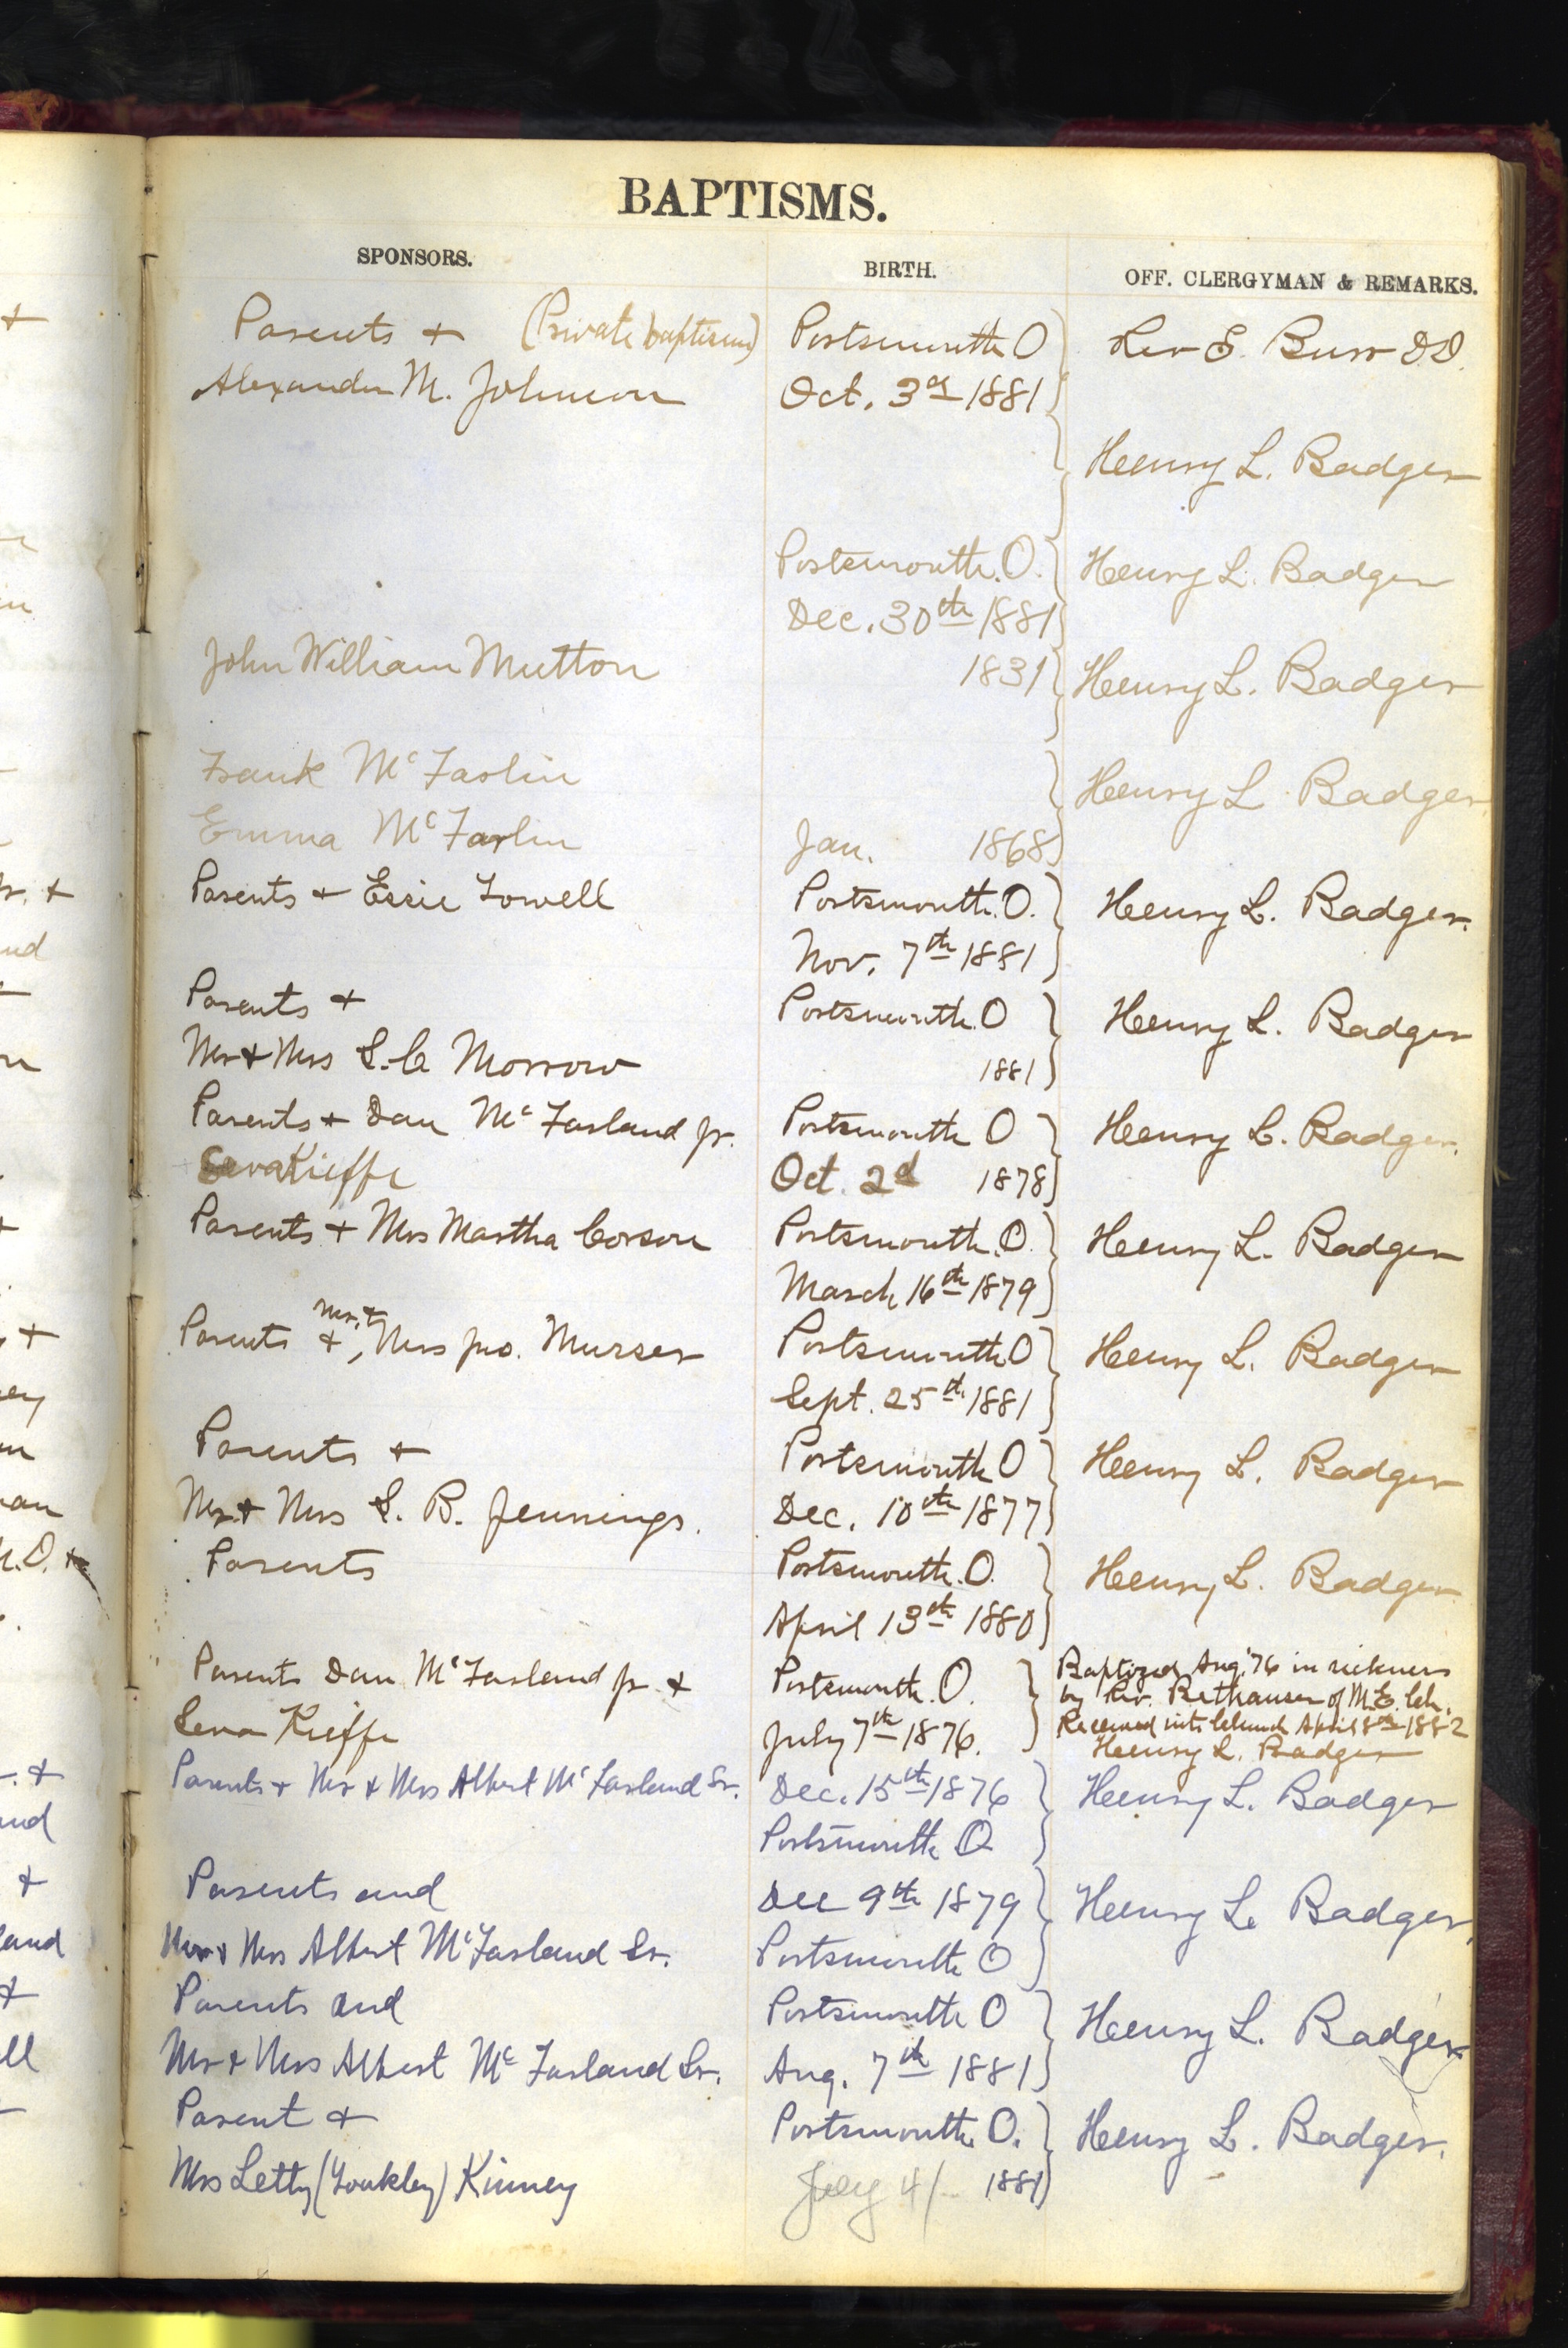 BAPTISMS.
SPONSORS. BIRTH. OFF. CLERGYMAN & REMARKS.
Parents + (Private baptism) Portsmouth O Rev E. Burr D.D.
Alexander M. Johnson Oct. 3rd 1881
Henry L. Badger
Portsmouth. O. Henry L. Badger
Dec. 30th 1881
John William Mutton 1831 Henry L. Badger
Frank McFarlin Henry L Badger
Emma McFarlin Jan. 1868
Parents + Essie Lowell Portsmouth. O. Henry L. Badger.
Nov. 7th 1881
Parents + Portsmouth. O Henry L. Badger
Mr + Mrs S. C Morrow 1881
Parents + Dan McFarland Jr. Portsmouth O Henry L. Badger.
Sena Kieffe Oct. 2d 1878
Parents + Mrs Martha Corson Portsmouth. O. Henry L. Badger
March 16th 1879
Mr. +
Parents +, Mrs Jno. Murser Portsmouth O Henry L. Badger
Sept. 25th 1881
Parents + Portsmouth O Henry L. Badger
Mr. + Mrs S. B. Jennings. Dec. 10th 1877
Parents Portsmouth. O. Henry L. Badger
April 13th 1880
Parents Dan McFarland Jr + Portsmouth. O. Baptized Aug. '76 in sickness
by Rev. of M. E. Ch.
Sena Kieffe July 7th 1876. Received into Church April 8th 1882
Henry L. Badger
Parents + Mr + Mrs Albert McFarland Sr. Dec. 15th 1876 Henry L. Badger
Portsmouth O
Parents and Dec 9th 1879 Henry L. Badger.
Mr + Mrs Albert McFarland Sr. Portsmouth O
Parents and Portsmouth O Henry L. Badger
Mr + Mrs Albert McFarland Sr. Aug. 7th 1881
Parent + Portsmouth O. Henry L. Badger.
Mrs Letty (Yoakley) Kinney July 4/ 1881